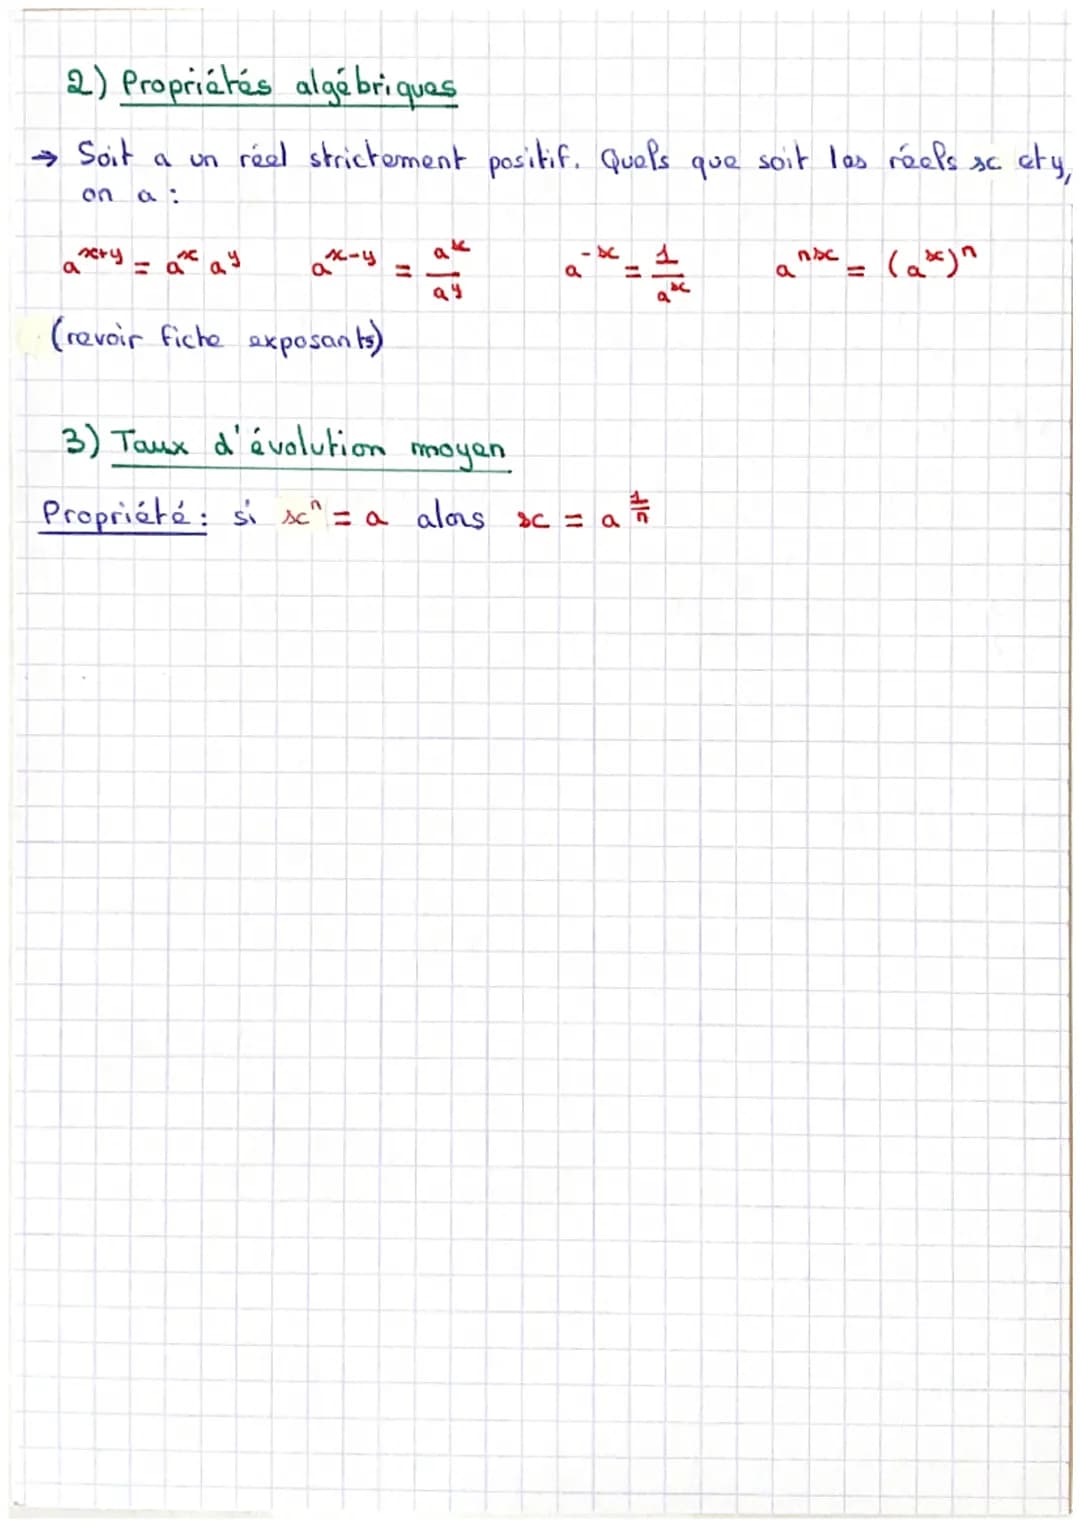 2) Propriétés algébriques
→ Soit a un réel strictement positif. Quels que soit les réels x et y,
on a :
a^(x+y) = a^x a^y    a^(x-y) = a^x / a^y    a^(-x) = 1 / a^x    a^(nx) = (a^x)^n
(revoir fiche exposants)
3) Taux d'évolution moyen
Propriété : si x^n = a alors x = a^(1/n)